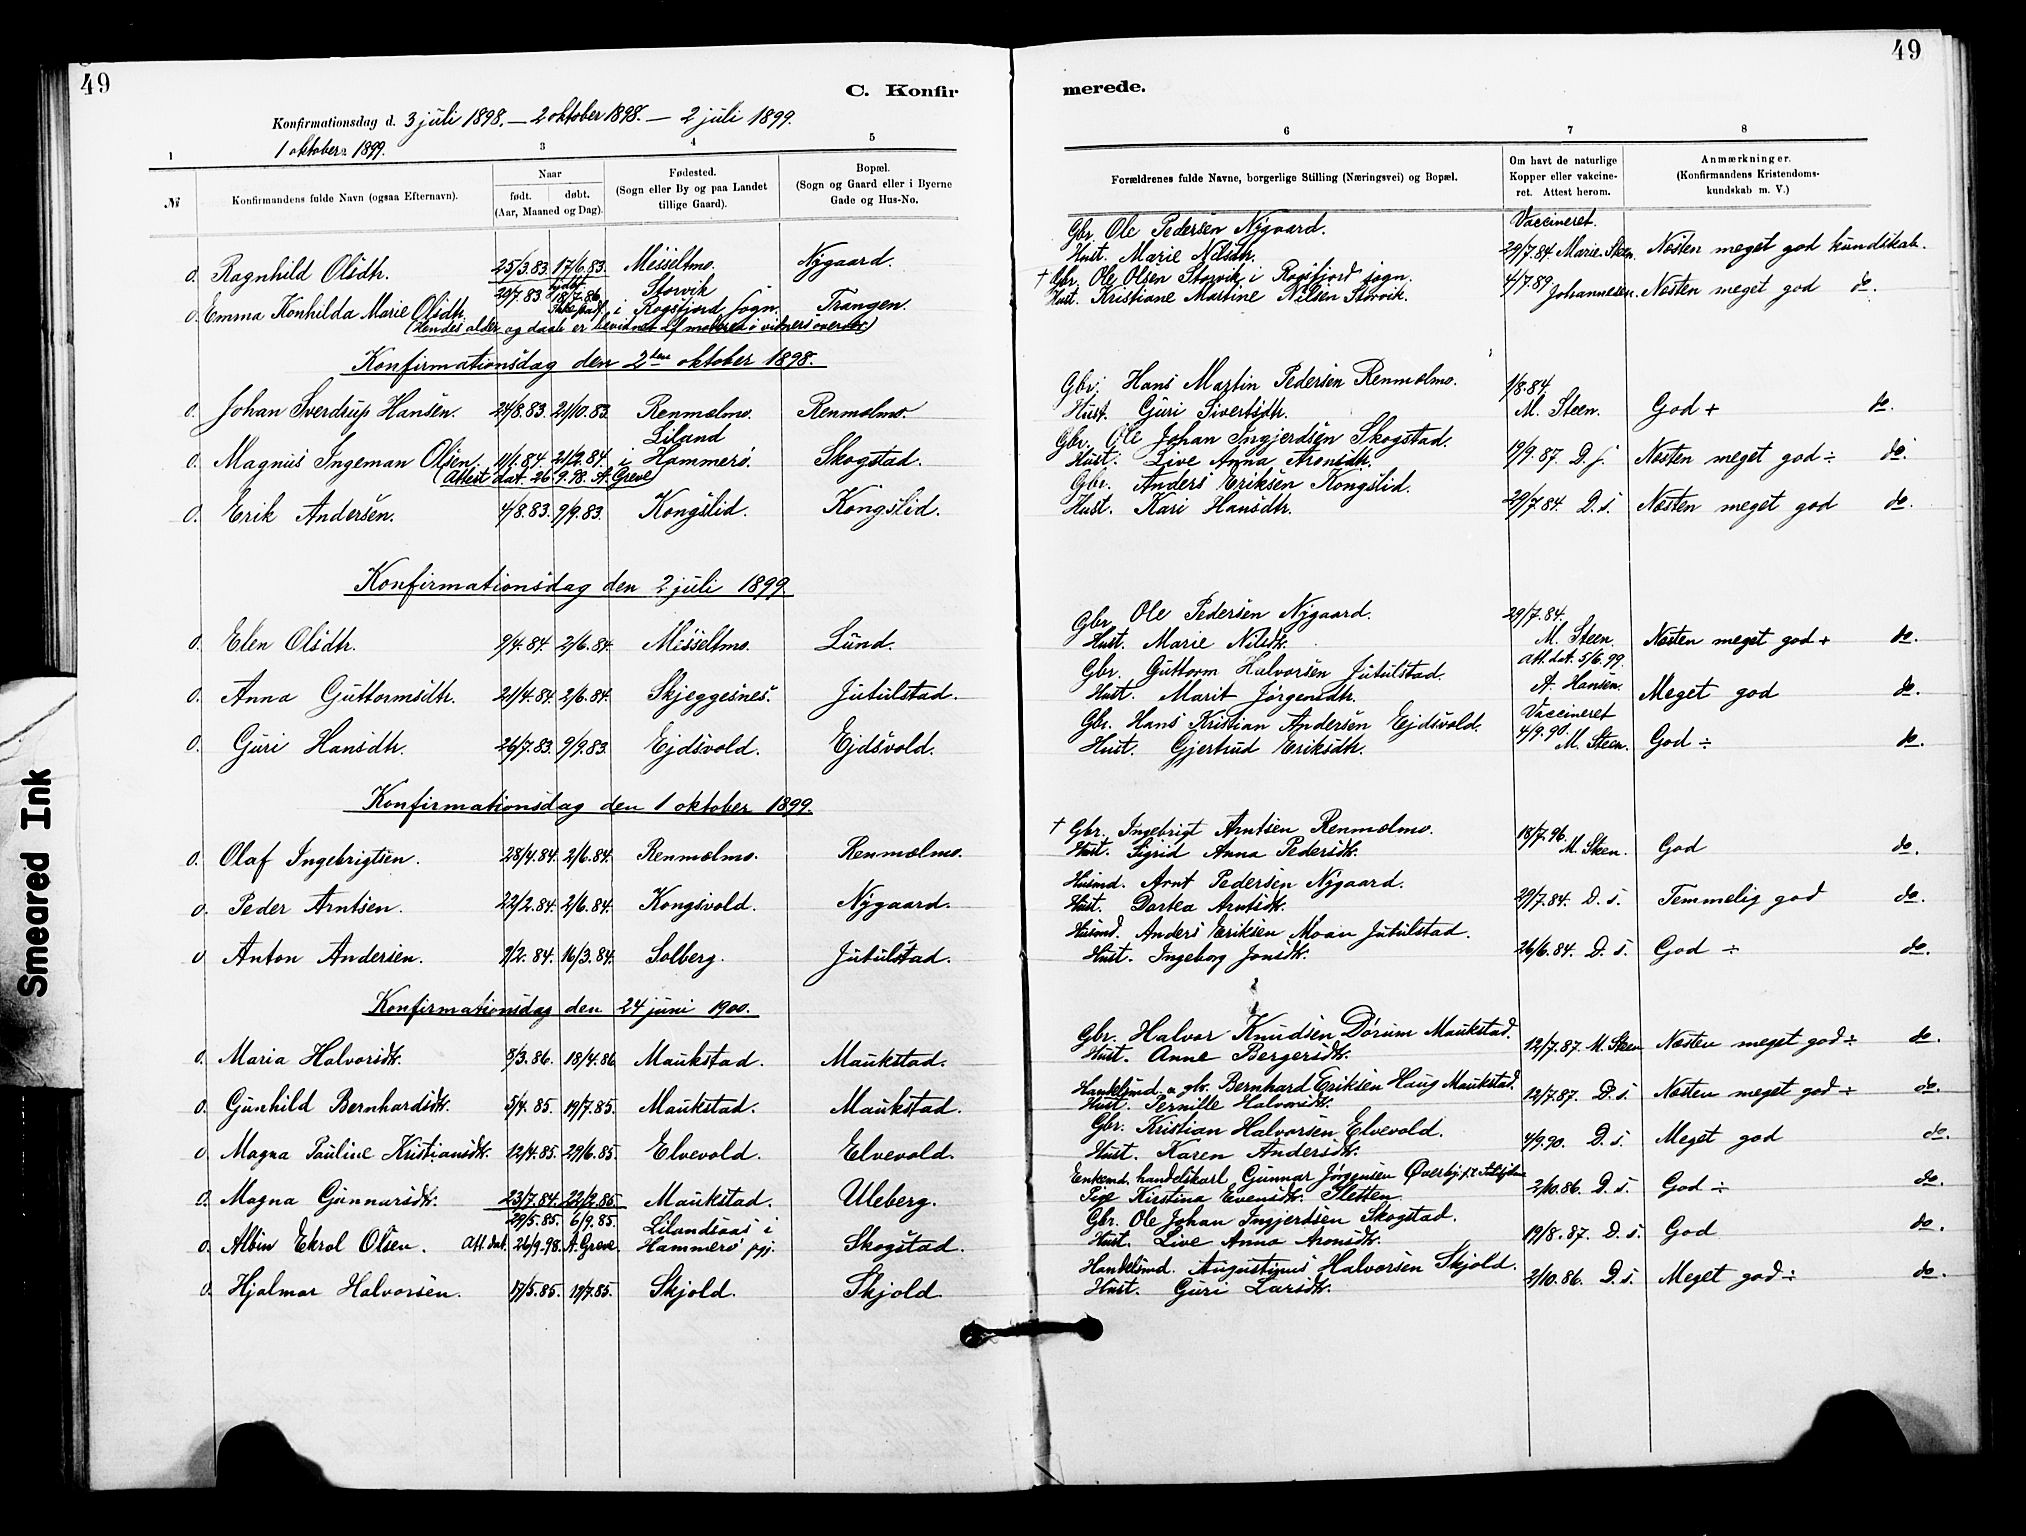 49
C. Konfir
Konfirmationsdag d. 3 juli 1898. – 2 oktober 1898. – 2 juli 1899.
1 oktober 1899.
1 3 4 5
№
Konfirmandens fulde Navn (ogsaa Efternavn).
Naar
født. døbt.
(Aar, Maaned og Dag).
Fødested.
(Sogn eller By og paa Landet
tillige Gaard).
Bopæl.
(Sogn og Gaard eller i Byerne
Gade og Hus-No.
o. Ragnhild Olsdtr. 25/3.83. 17/6.83. Misseltmo. Nygaard.
o. Emma Konhilda Marie Olsdtr. 29/7 83 18/7.86. Storvik
i Rogsfjord sogn. Trangen.
(Hendes alder og daab er bevidnet af moderen i vidners overvær)
Konfirmationsdag den 2den oktober 1898.
o. Johan Sverdrup Hansen. 24/8.83. 21/10.83. Renmælmo. Renmælmo.
o. Magnus Ingeman Olsen. 1/1.84. 21/2.84. Liland
i Hammerø. Skogstad.
(Attest dat. 26/9.98. A. Greve)
o. Erik Andersen. 4/8.83. 9/9.83. Kongslid. Kongslid.
Konfirmationsdag den 2 juli 1899
o. Elen Olsdtr. 9/4.84. 2/6.84. Misseltmo. Lund.
o. Anna Guttormsdtr. 21/4.84. 2/6.84. Skjeggesnes. Jutulstad.
o. Guri Hansdtr. 26/7.83. 9/9.83. Ejdsvold. Ejdsvold.
Konfirmationsdag den 1 oktober 1899.
o. Olaf Ingebrigtsen. 28/4.84. 2/6.84. Renmælmo. Renmælmo.
o. Peder Arntsen. 22/2.84. 2/6.84. Kongsvold. Nygaard.
o Anton Andersen. 9/2.84. 16/3.84. Solberg. Jutulstad.
Konfirmationsdag den 24 juni 1900.
o. Maria Halvorsdtr. 3/3.86. 18/4.86 Maukstad. Maukstad.
o. Gunhild Bernhardsdtr. 5/4.85. 19/7.85. Maukstad. Maukstad.
o. Magna Pauline Kristiansdtr. 12/4.85. 29/6.85. Elvevold. Elvevold.
o. Magna Gunnarsdtr. 23/7.84. 22/2.85. Maukstad. Uleberg.
o. Albin Ekrol Olsen. 29/5.85. 6/9.85. Lilandsaas i
Att. dat. 26/9.98. A. Greve. Hammerø pgj. Skogstad.
o. Hjalmar Halvorsen. 17/5.85. 19/7.85. Skjold. Skjold.
49
merede.
6 7 8
Forældrenes fulde Navne, borgerlige Stilling (Næringsvei) og Bopæl.
Om havt de naturlige
Kopper eller vakcine-
ret. Attest herom.
Anmærkninger.
(Konfirmandens Kristendoms-
kundskab m. V.)
Gbr. Ole Pedersen Nygaard. Vaccineret.
Hust. Marie Nilsdtr. 29/7.84. Marie Steen. Næsten meget god kundskab.
† Gbr. Ole Olsen Storvik i Rogsfjord sogn. 4/7.89.
Hust. Kristiane Martine Nilsen Storvik. Johannesen. Næsten meget god do.
Gbr. Hans Martin Pedersen Renmælmo. 1/8.84.
Hust. Guri Sivertsdtr. M. Steen. God + do.
Gbr. Ole Johan Ingjerdsen Skogstad.
Hust. Live Anna Aronsdtr. 19/9.87. D. s. Næsten meget god ÷ do.
Gbr. Anders Eriksen Kongslid.
Hust. Kari Hansdtr. 29/7.84. D. s. Næsten meget god do.
Gbr. Ole Pedersen Nygaard. 29/7.84.
Hust. Marie Nilsdtr. M. Steen. Næsten meget god + do.
Gbr. Guttorm Halvorsen Jutulstad. Att. dat. 5/6.99.
Hust. Marit Jørgensdtr. A. Hansen. Meget god do.
Gbr. Hans Kristian Andersen Ejdsvold. Vaccineret
Hust. Gjertrud Eriksdtr. 4/9.90. M. Steen. God ÷ do.
† Gbr. Ingebrigt Arntsen Renmælmo. 18/7.96.
Hust. Sigrid Anna Pedersdtr. M. Steen. God do.
Husmd. Arnt Pedersen Nygaard.
Hust. Dortea Arntsdtr. 29/7.84. D. s. Temmelig god do.
Husmd. Anders Eriksen Moan Jutulstad.
Hust. Ingeborg Jonsdtr. 26/6.84. D. s. God ÷ do.
Gbr. Halvor Knudsen Dørum Maukstad.
Hust. Anne Bergersdtr. 12/7.87. M. Steen Næsten meget god ÷ do.
Handelsmd. o. gbr. Bernhard Eriksen Haug Maukstad.
Hust. Pernille Halvorsdtr. 12/7.87. D. s. Næsten meget god ÷ do.
Gbr. Kristian Halvorsen Elvevold.
Hust. Karen Andersdtr. 4/9.90. D. s. Meget god do.
Enkemd. handelskarl Gunnar Jørgensen Øverby
Pige Kirstina Evensdtr. Sletten 2/10.86. D. s. God ÷ do.
Gbr. Ole Johan Ingjerdsen Skogstad.
Hust. Live Anna Aronsdtr. 19/8.87. D. s. God do.
Handelsmd. Augustinus Halvorsen Skjold.
Hust. Guri Larsdtr. 2/10.86. D. s. Meget god ÷ do.
Smeared Ink